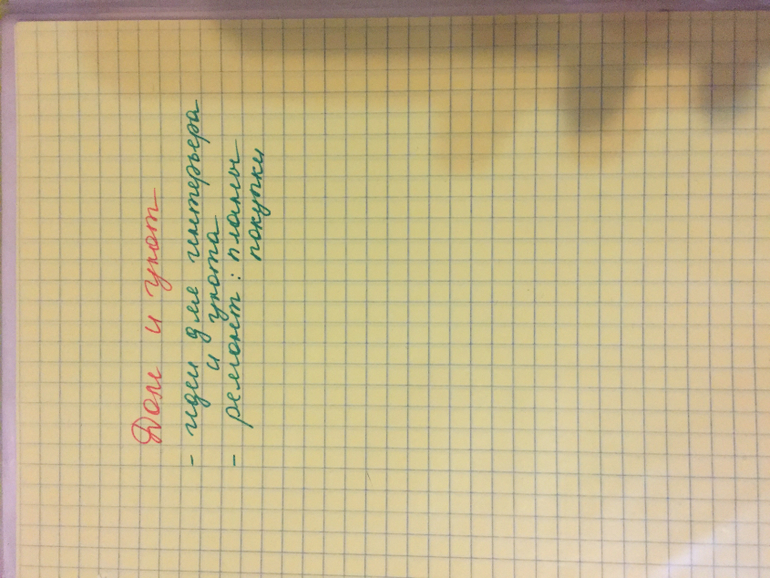 Дом и уют
- идеи для интерьера
и уюта
- ремонт: планы
покупки